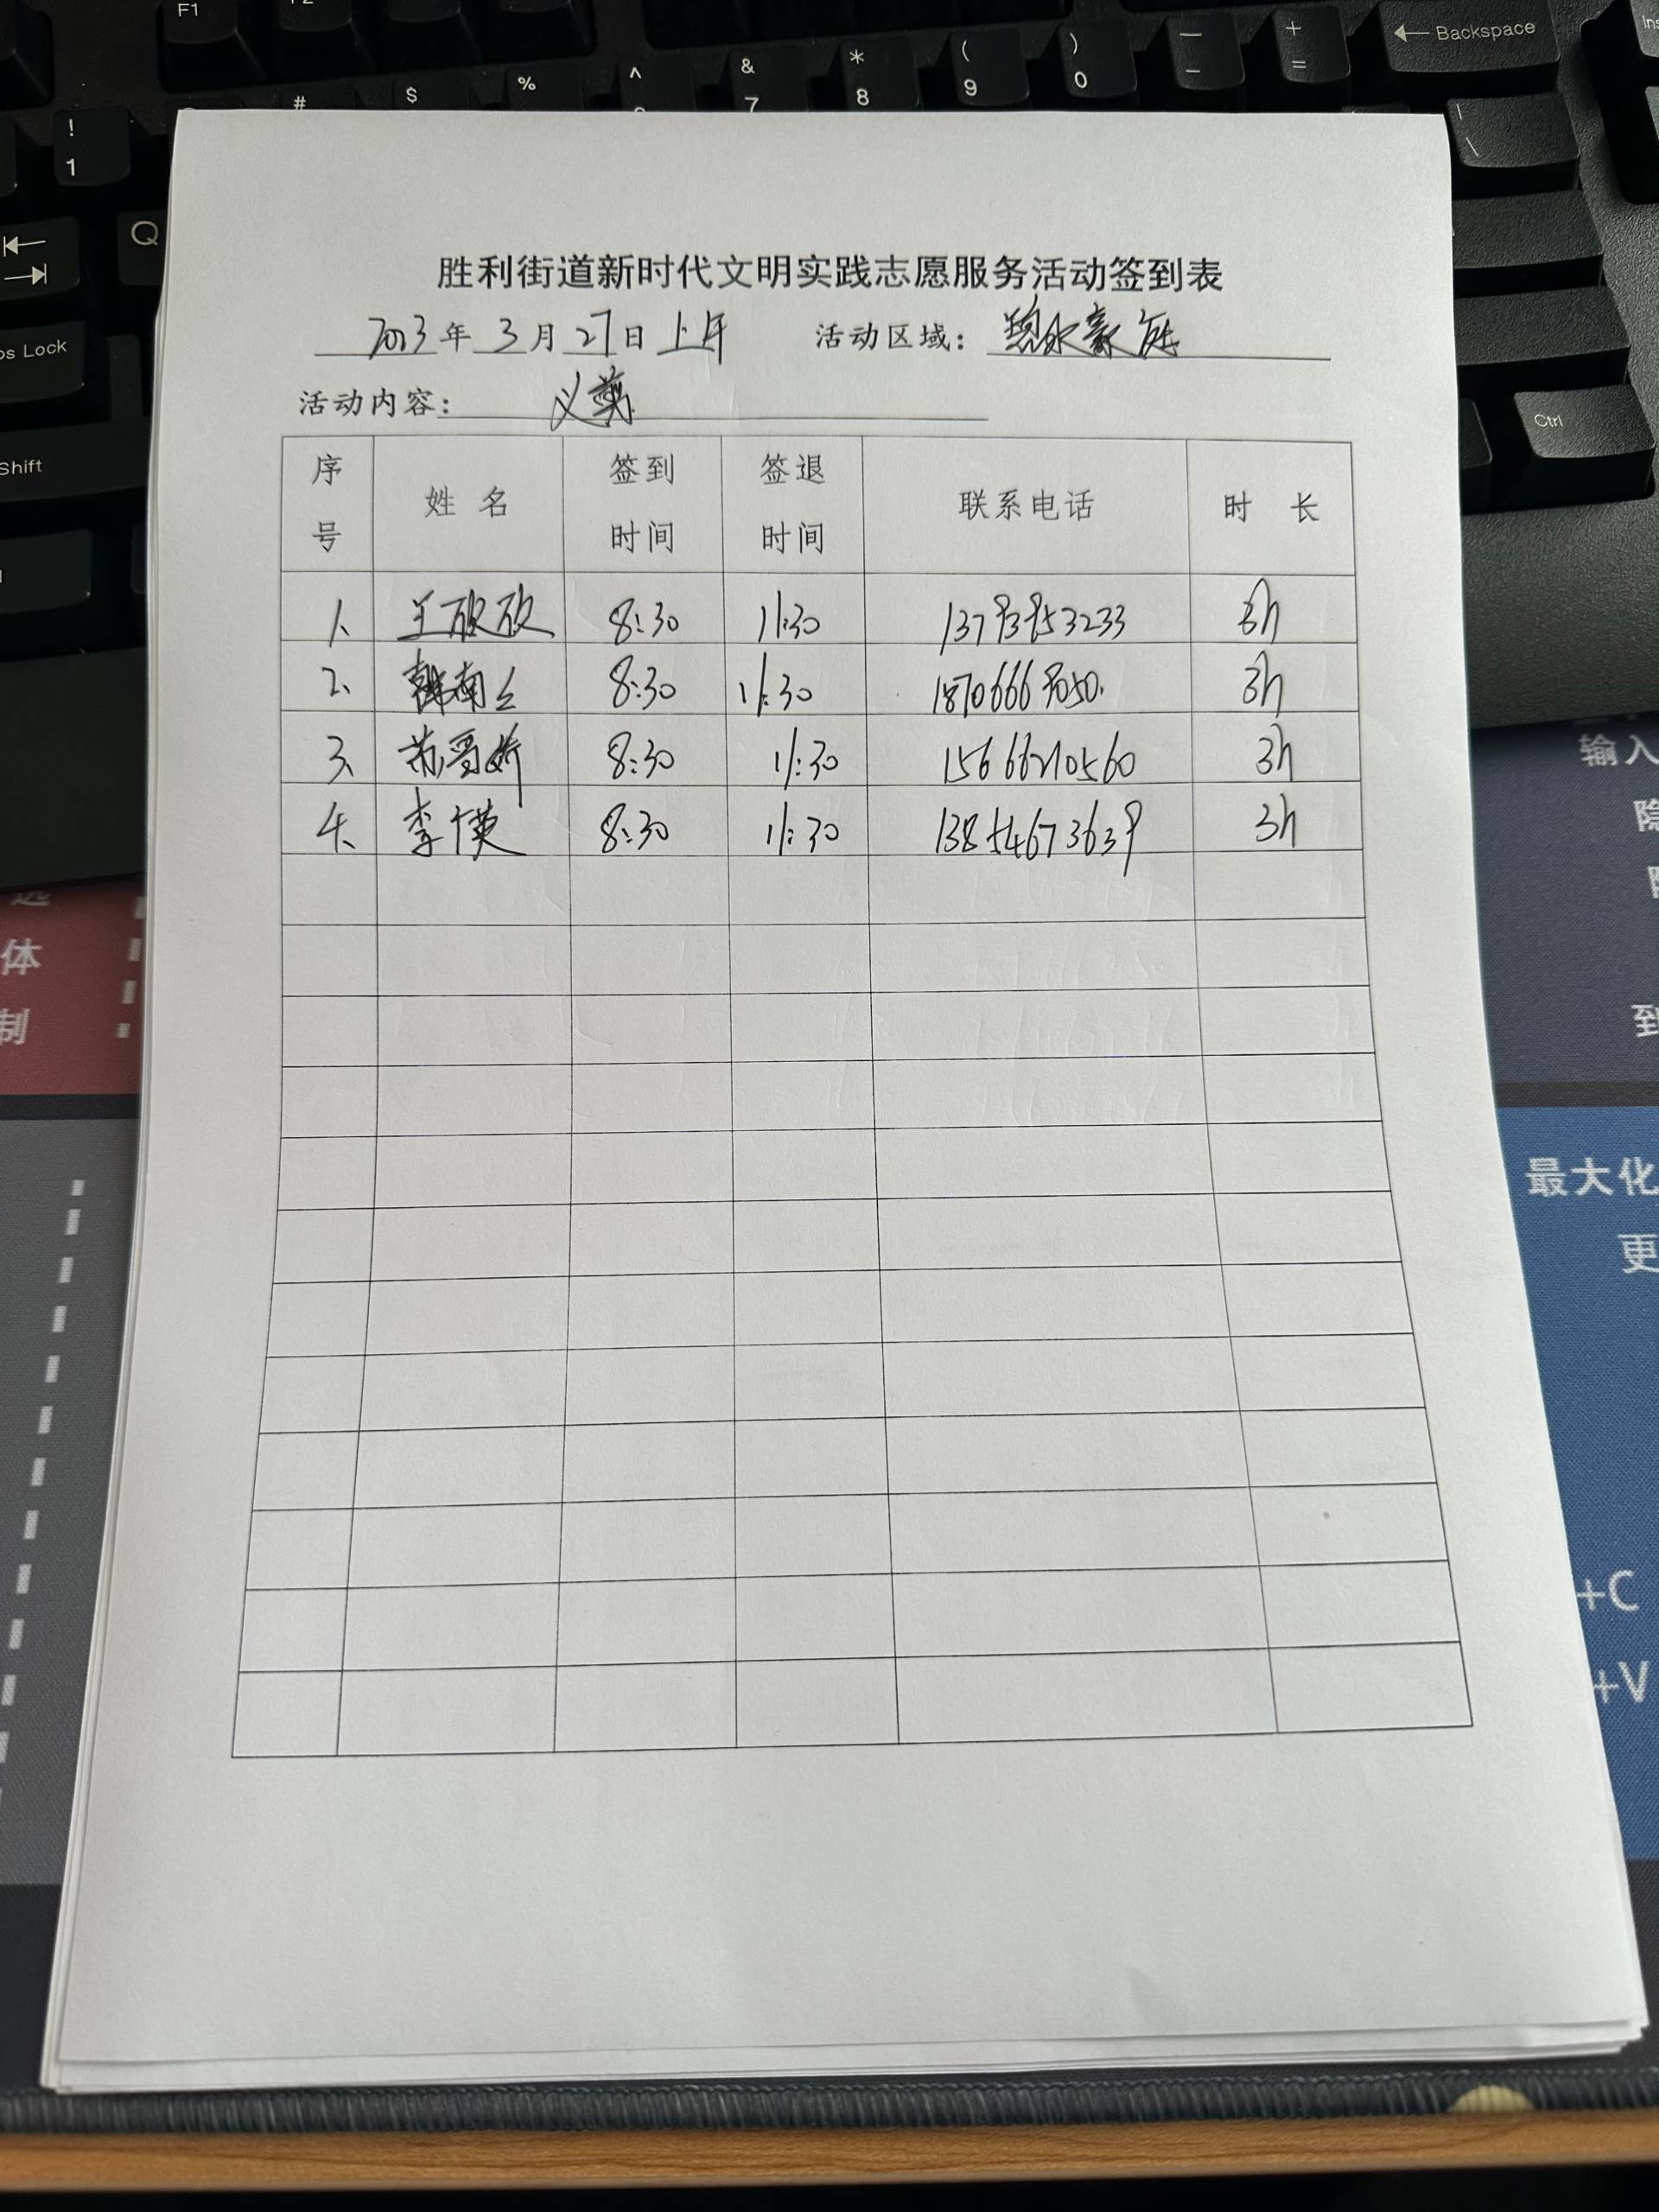 F1
# $ % ^ & * ( ) — +
! 1 7 8 9 0 - = Backspace
Q
胜利街道新时代文明实践志愿服务活动签到表
2023年 3月 27日 上午 活动区域：碧水豪庭
活动内容：义剪
序号 姓名 签到时间 签退时间 联系电话 时长
1、 王欣欣 8:30 11:30 13793953233 3h
2、 韩南 8:30 11:30 18706669050 3h
3、 苏晋娇 8:30 11:30 15666210560 3h
4、 李 8:30 11:30 13854673639 3h
Lock
Shift
Ctrl
输入
体
制
到
最大化
更
+C
+V